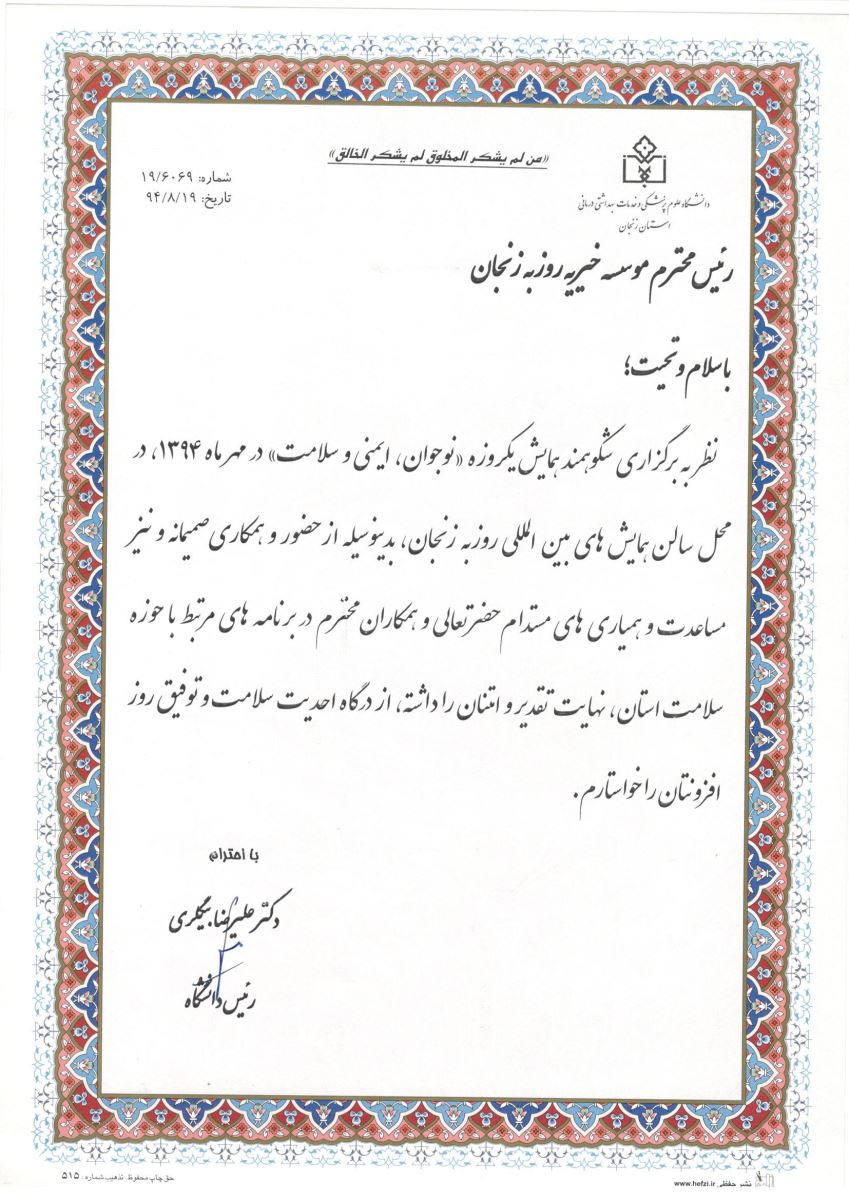 «من لم یشکر المخلوق لم یشکر الخالق»
دانشگاه علوم پزشکی و خدمات بهداشتی درمانی
استان زنجان
شماره: ۱۹/۶۰۶۹
تاریخ: ۹۴/۸/۱۹
رئیس محترم موسسه خیریه روزبه زنجان
با سلام و تحیت؛
نظر به برگزاری شکوهمند همایش یکروزه «نوجوان، ایمنی و سلامت» در مهر ماه ۱۳۹۴، در
محل سالن همایش های بین المللی روزبه زنجان، بدینوسیله از حضور و همکاری صمیمانه و نیز
مساعدت و همیاری های مستدام حضرتعالی و همکاران محترم در برنامه های مرتبط با حوزه
سلامت استان، نهایت تقدیر و امتنان را داشته، از درگاه احدیت سلامت و توفیق روز
افزونتان را خواستارم.
با احترام
دکتر علیرضا بیگلری
رئیس دانشگاه
نشر حفظی www.hefzi.ir
حق چاپ محفوظ. تذهیب شماره: ۵۱۵